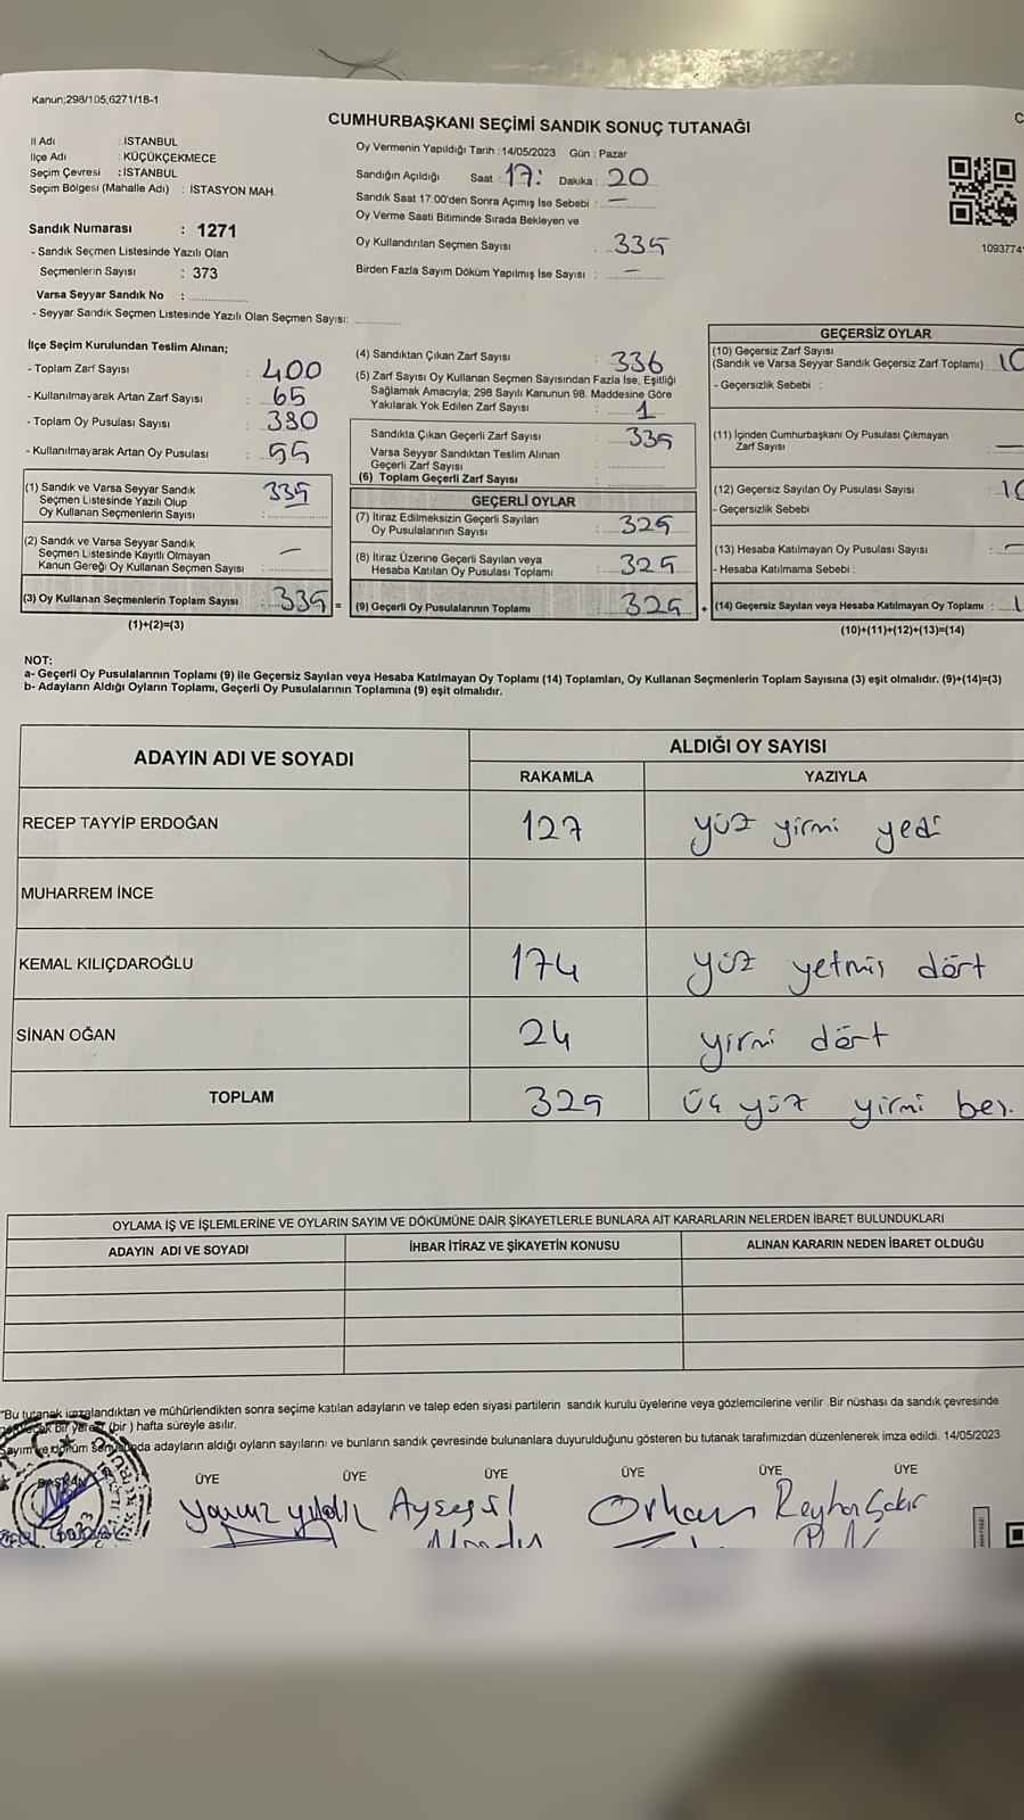 Kanun;298/105;6271/18-1
CUMHURBAŞKANI SEÇİMİ SANDIK SONUÇ TUTANAĞI
İl Adı : İSTANBUL
İlçe Adı : KÜÇÜKÇEKMECE
Seçim Çevresi : İSTANBUL
Seçim Bölgesi (Mahalle Adı) : İSTASYON MAH.
Sandık Numarası : 1271
- Sandık Seçmen Listesinde Yazılı Olan
Seçmenlerin Sayısı : 373
Varsa Seyyar Sandık No :
- Seyyar Sandık Seçmen Listesinde Yazılı Olan Seçmen Sayısı:
Oy Vermenin Yapıldığı Tarih : 14/05/2023 Gün : Pazar
Sandığın Açıldığı Saat : 17: Dakika : 20
Sandık Saat 17:00'den Sonra Açımış İse Sebebi : —
Oy Verme Saati Bitiminde Sırada Bekleyen ve
Oy Kullandırılan Seçmen Sayısı : 335
Birden Fazla Sayım Döküm Yapılmış İse Sayısı : —
109377
İlçe Seçim Kurulundan Teslim Alınan;
- Toplam Zarf Sayısı : 400
- Kullanılmayarak Artan Zarf Sayısı : 65
- Toplam Oy Pusulası Sayısı : 380
- Kullanılmayarak Artan Oy Pusulası : 55
(1) Sandık ve Varsa Seyyar Sandık
Seçmen Listesinde Yazılı Olup
Oy Kullanan Seçmenlerin Sayısı : 335
(2) Sandık ve Varsa Seyyar Sandık
Seçmen Listesinde Kayıtlı Olmayan
Kanun Gereği Oy Kullanan Seçmen Sayısı : —
(3) Oy Kullanan Seçmenlerin Toplam Sayısı : 335 =
(1)+(2)=(3)
(4) Sandıktan Çıkan Zarf Sayısı : 336
(5) Zarf Sayısı Oy Kullanan Seçmen Sayısından Fazla İse, Eşitliği
Sağlamak Amacıyla; 298 Sayılı Kanunun 98. Maddesine Göre
Yakılarak Yok Edilen Zarf Sayısı : 1
Sandıkta Çıkan Geçerli Zarf Sayısı : 335
Varsa Seyyar Sandıktan Teslim Alınan
Geçerli Zarf Sayısı :
(6) Toplam Geçerli Zarf Sayısı :
GEÇERLİ OYLAR
(7) İtiraz Edilmeksizin Geçerli Sayılan
Oy Pusulalarının Sayısı : 325
(8) İtiraz Üzerine Geçerli Sayılan veya
Hesaba Katılan Oy Pusulası Toplamı : 325
(9) Geçerli Oy Pusulalarının Toplamı : 325 +
GEÇERSİZ OYLAR
(10) Geçersiz Zarf Sayısı
(Sandık ve Varsa Seyyar Sandık Geçersiz Zarf Toplamı) :
- Geçersizlik Sebebi :
(11) İçinden Cumhurbaşkanı Oy Pusulası Çıkmayan
Zarf Sayısı : —
(12) Geçersiz Sayılan Oy Pusulası Sayısı :
- Geçersizlik Sebebi
(13) Hesaba Katılmayan Oy Pusulası Sayısı : —
- Hesaba Katılmama Sebebi :
(14) Geçersiz Sayılan veya Hesaba Katılmayan Oy Toplamı :
(10)+(11)+(12)+(13)=(14)
NOT:
a- Geçerli Oy Pusulalarının Toplamı (9) ile Geçersiz Sayılan veya Hesaba Katılmayan Oy Toplamı (14) Toplamları, Oy Kullanan Seçmenlerin Toplam Sayısına (3) eşit olmalıdır. (9)+(14)=(3)
b- Adayların Aldığı Oyların Toplamı, Geçerli Oy Pusulalarının Toplamına (9) eşit olmalıdır.
ADAYIN ADI VE SOYADI
ALDIĞI OY SAYISI
RAKAMLA YAZIYLA
RECEP TAYYİP ERDOĞAN 127 yüz yirmi yedi
MUHARREM İNCE
KEMAL KILIÇDAROĞLU 174 yüz yetmiş dört
SİNAN OĞAN 24 yirmi dört
TOPLAM 325 üç yüz yirmi beş.
OYLAMA İŞ VE İŞLEMLERİNE VE OYLARIN SAYIM VE DÖKÜMÜNE DAİR ŞİKAYETLERLE BUNLARA AİT KARARLARIN NELERDEN İBARET BULUNDUKLARI
ADAYIN ADI VE SOYADI İHBAR İTİRAZ VE ŞİKAYETİN KONUSU ALINAN KARARIN NEDEN İBARET OLDUĞU
"Bu tutanak imzalandıktan ve mühürlendikten sonra seçime katılan adayların ve talep eden siyasi partilerin sandık kurulu üyelerine veya gözlemcilerine verilir. Bir nüshası da sandık çevresinde
bir yere (bir) hafta süreyle asılır.
Sayım ve döküm adayların aldığı oyların sayılarını ve bunların sandık çevresinde bulunanlara duyurulduğunu gösteren bu tutanak tarafımızdan düzenlenerek imza edildi. 14/05/2023
BAŞKAN ÜYE ÜYE ÜYE ÜYE ÜYE ÜYE
Yavuz Ayşegül Orhan Reyhan Şakir